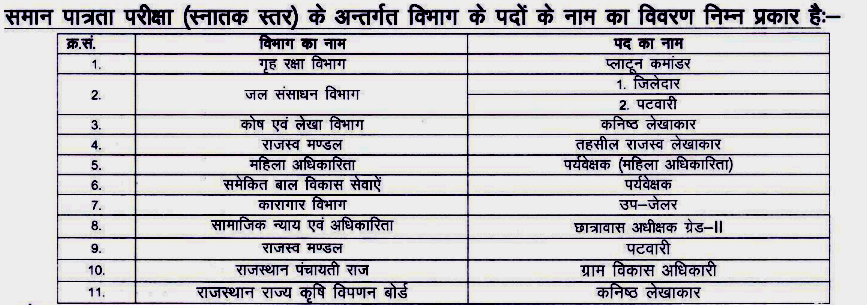 समान पात्रता परीक्षा (स्नातक स्तर) के अन्तर्गत विभाग के पदों के नाम का विवरण निम्न प्रकार है:–
क्र.सं. विभाग का नाम पद का नाम
1. गृह रक्षा विभाग प्लाटून कमांडर
2. जल संसाधन विभाग 1. जिलेदार
2. पटवारी
3. कोष एवं लेखा विभाग कनिष्ठ लेखाकार
4. राजस्व मण्डल तहसील राजस्व लेखाकार
5. महिला अधिकारिता पर्यवेक्षक (महिला अधिकारिता)
6. समेकित बाल विकास सेवाऐं पर्यवेक्षक
7. कारागार विभाग उप–जेलर
8. सामाजिक न्याय एवं अधिकारिता छात्रावास अधीक्षक ग्रेड–II
9. राजस्व मण्डल पटवारी
10. राजस्थान पंचायती राज ग्राम विकास अधिकारी
11. राजस्थान राज्य कृषि विपणन बोर्ड कनिष्ठ लेखाकार